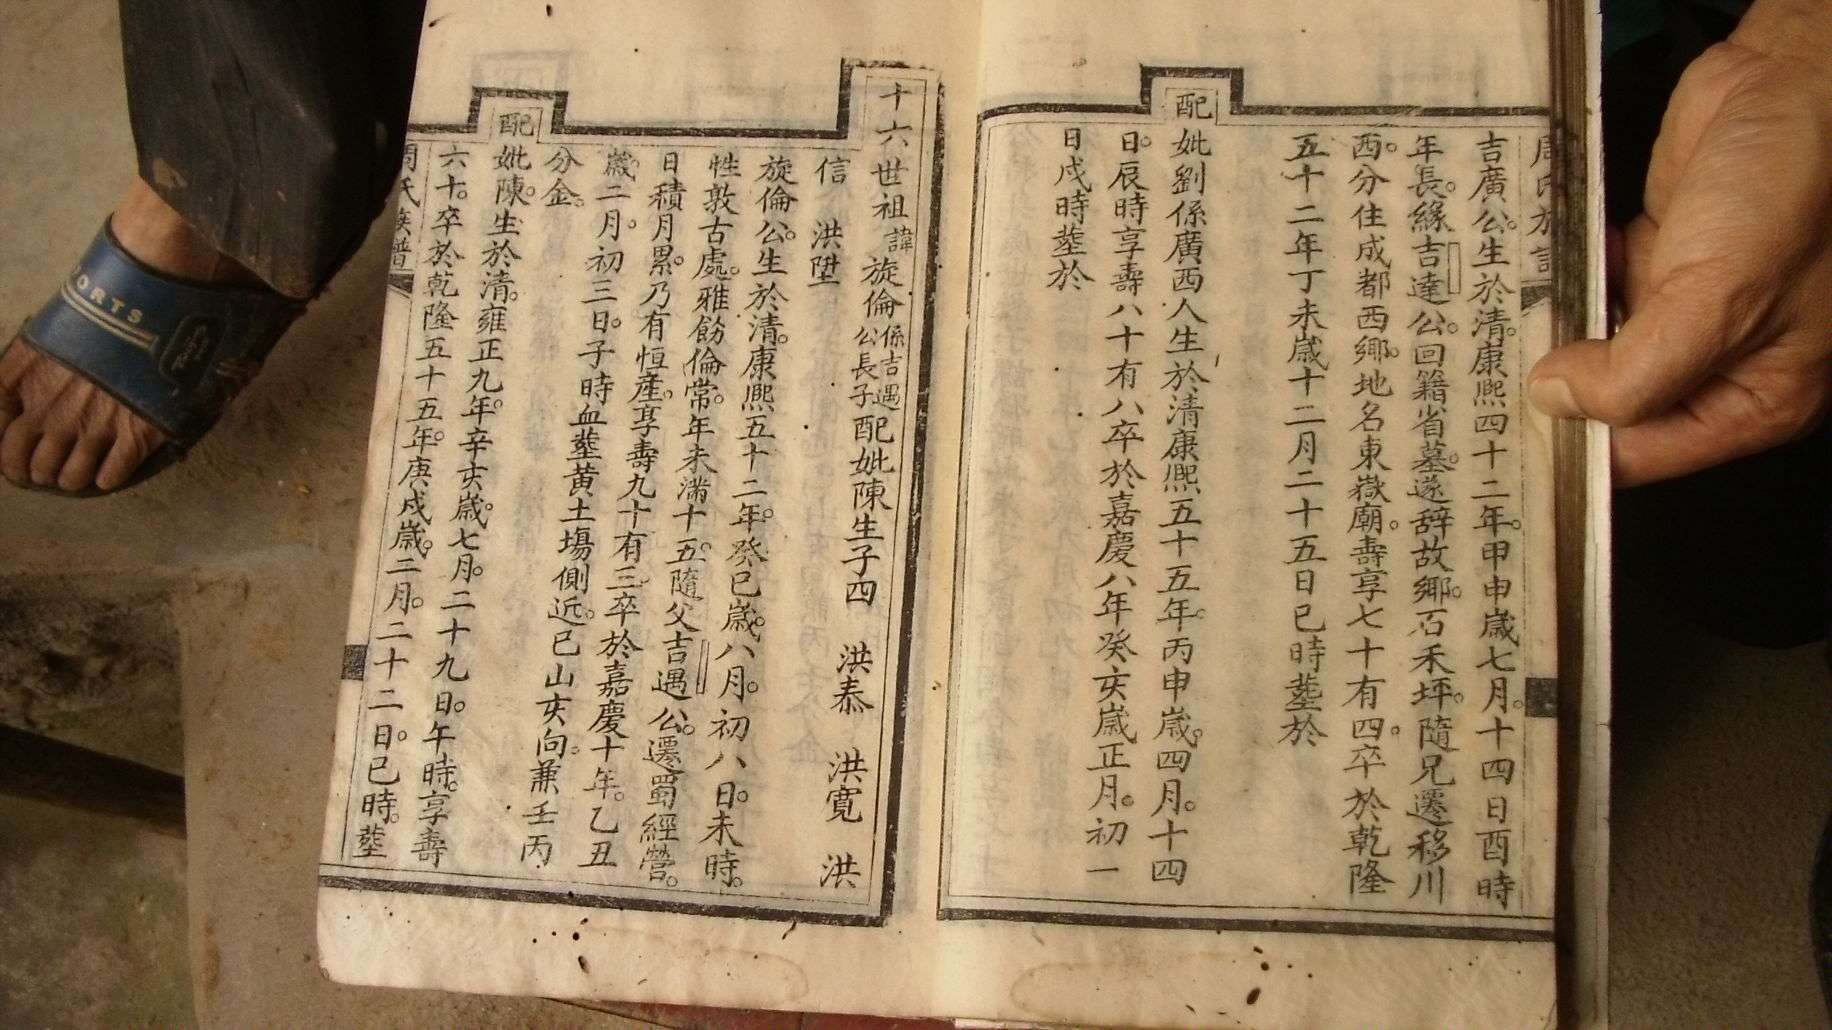 周氏族譜
吉廣公。生於清。康熙四十二年。甲申歲七月。十四日酉時
年長。緣吉達公。回籍省墓。遂辭故鄉。石禾坪。隨兄遷移川
西。分住成都西鄉。地名東嶽廟。壽享七十有四。卒於乾隆
五十二年丁未歲十二月二十五日巳時塟於
配
妣劉係廣西人生於清康熙五十五年。丙申歲。四月。十四
日。辰時享壽八十有八卒於嘉慶八年癸亥歲正月。初一
日戌時塟於
十六世祖諱旋倫係吉遇公長子配妣陳生子四 洪泰 洪寬 洪
信 洪陞
旋倫公。生於清。康熙五十二年。癸巳歲。八月。初八日。未時。
性敦古處。雅飭倫常。年未滿十五。隨父吉遇公。遷蜀經營。
日積月累。乃有恒產。享壽九十有三卒於嘉慶十年。乙丑
歲。二月。初三日。子時血塟黃土塲側近。巳山亥向。兼壬丙
分金。
配
妣陳。生於清。雍正九年。辛亥歲。七月。二十九日。午時。享壽
六十。卒於乾隆五十五年。庚戌歲。二月。二十二日。巳時。塟
周氏族譜
SPORTS